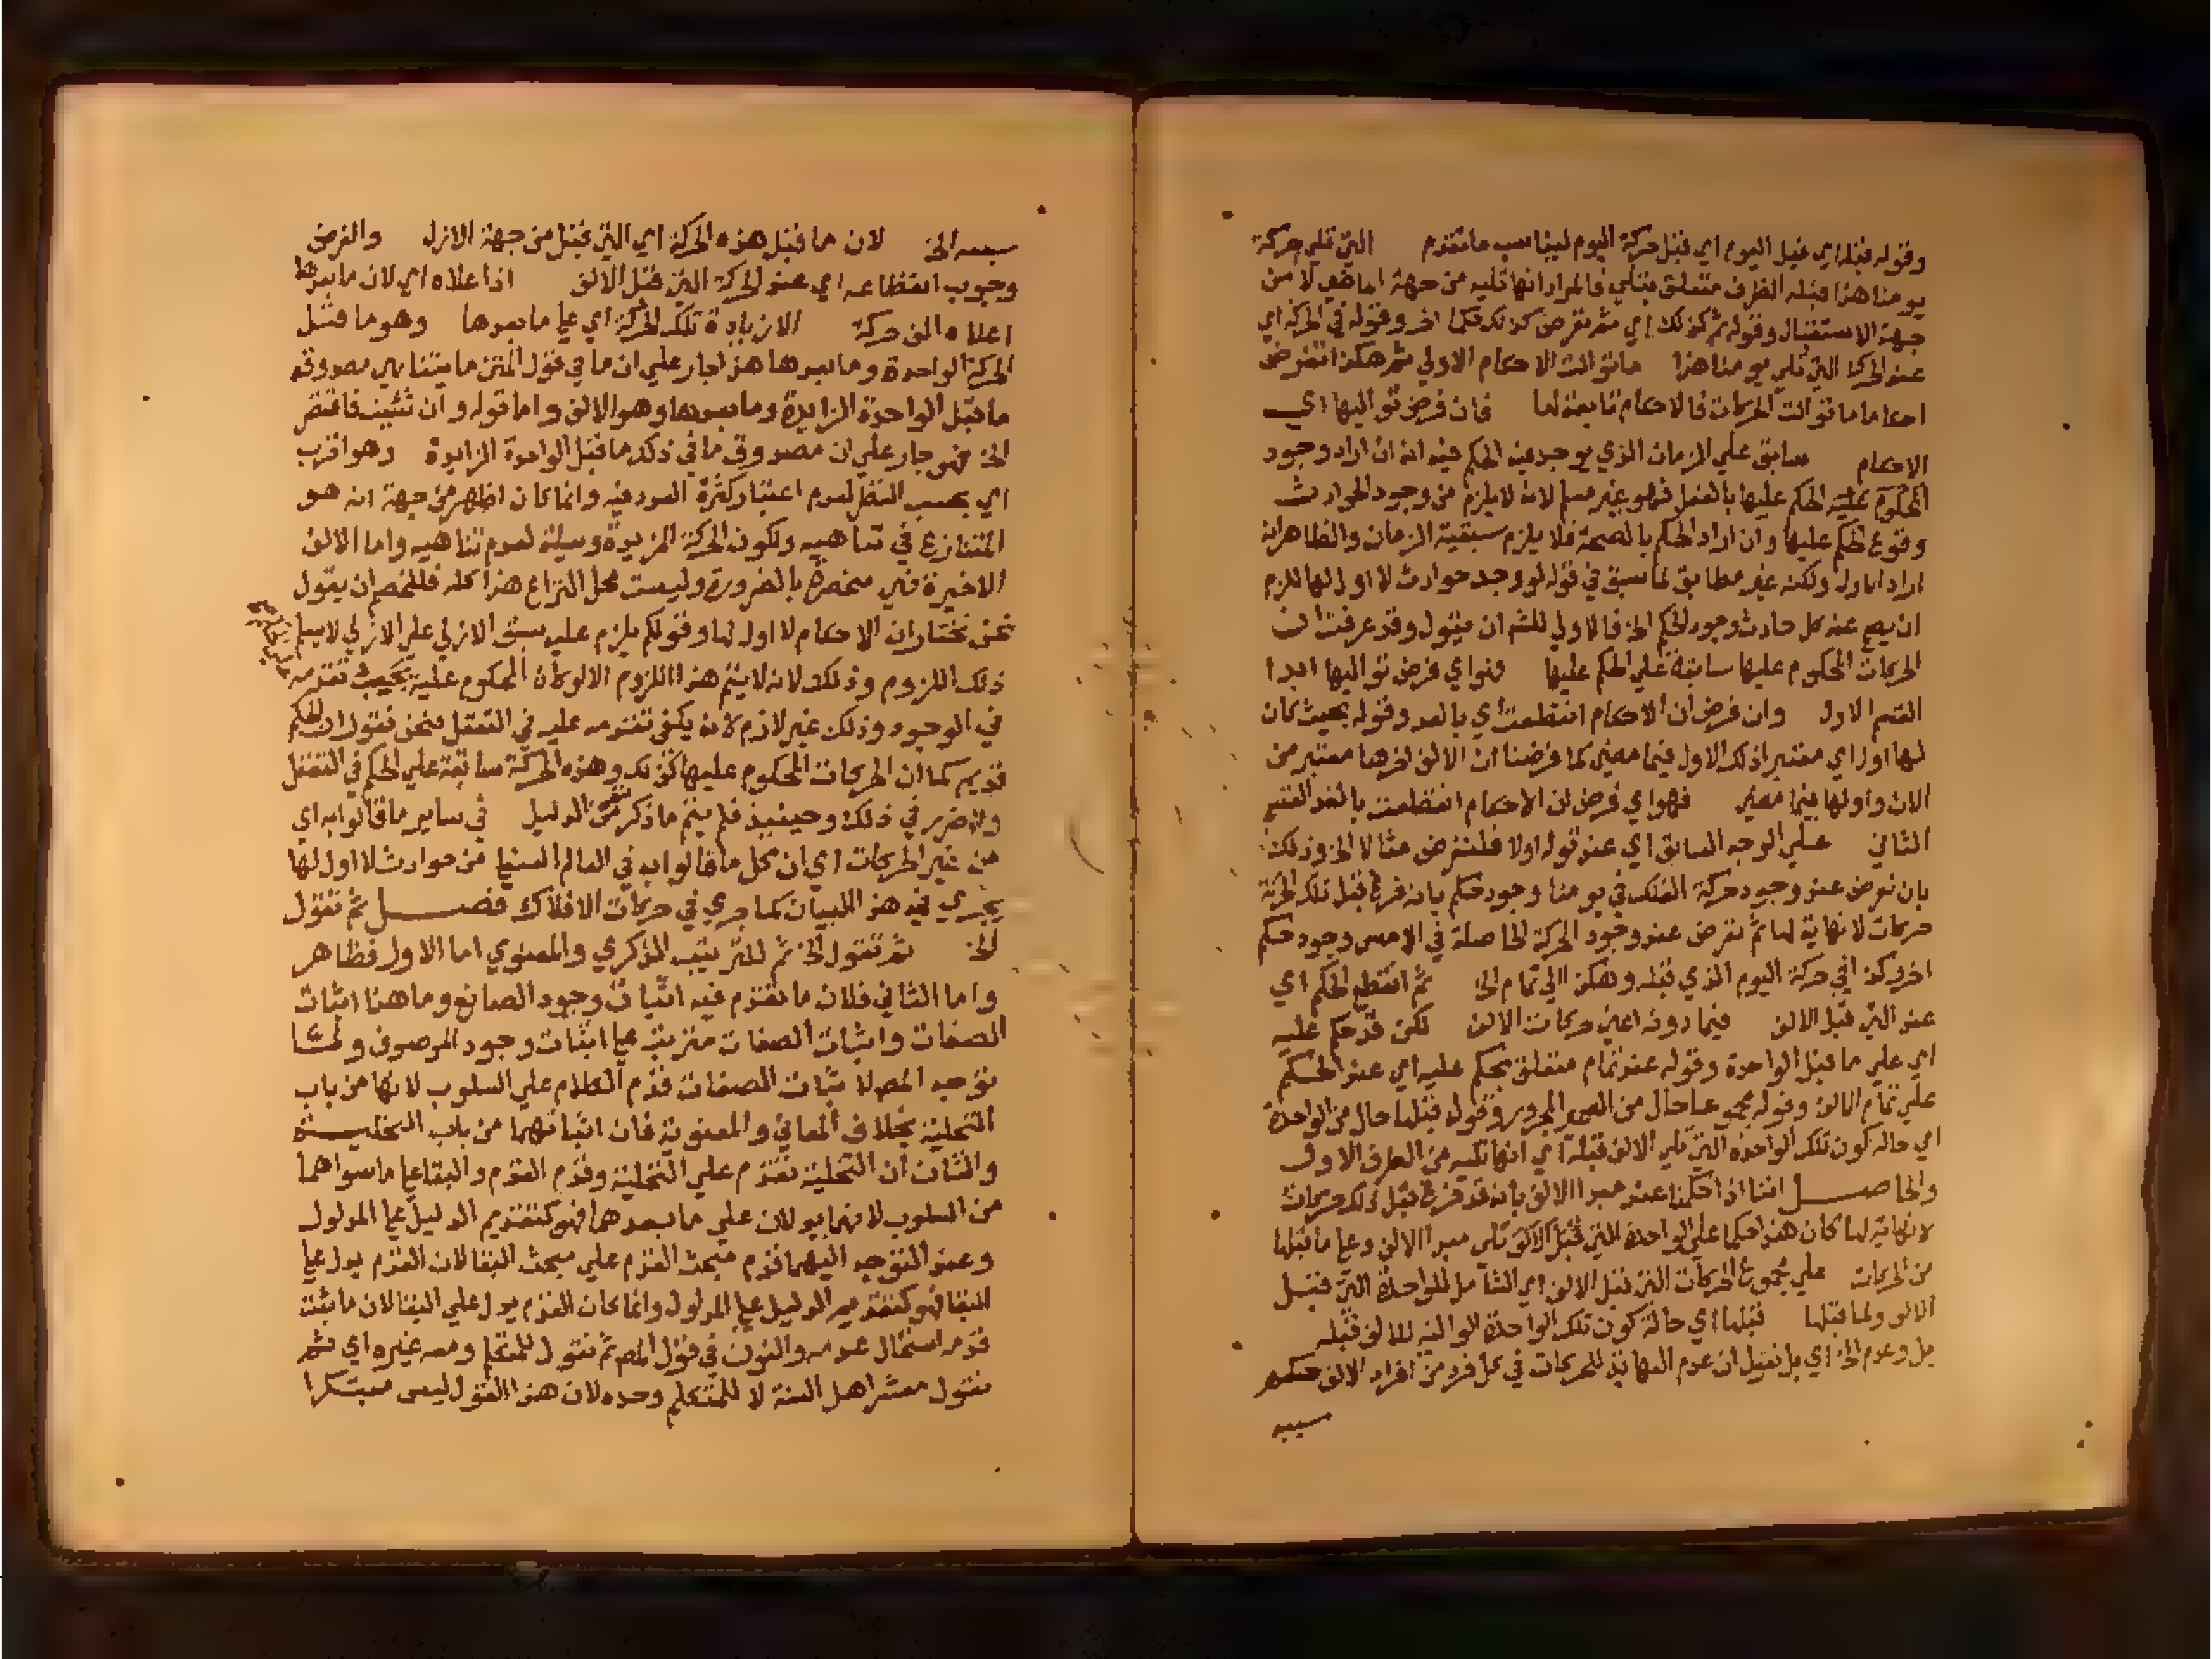 وقوله قبله اي قبل اليوم اي قبل حركة اليوم ليناسب ما تقدم التي تلي حركة
يومنا هذا قبله الظرف متعلق بتلي فالمراد انها تليه من جهة الماضي لا من
جهة الاستقبال وقوله ثم كذلك اي ثم نفرض كذلك حكما اخر وقوله في الحركة اي
عند الحركة التي تلي يومنا هذا ما توالت الاحكام الاولي ثم هكذا نفرض
احكاما ما توالت الحركات فالاحكام تابعة لها فان فرض تواليها اي
الاحكام سابق علي الزمان الذي يوجد فيه الحكم فيه انه ان اراد وجود
المحكوم عليه الحكم عليها بالفعل فهو غير مسلم لانه لا يلزم من وجود الحوادث
وقوع الحكم عليها وان اراد الحكم بالصحة فلا يلزم سبقية الزمان والظاهر انه
اراد الاول ولكنه غير مطابق لما سبق في قوله لو وجد حوادث لا اول لها للزم
ان يصح عند كل حادث وجود الحكم الخ فالاولي للش ان يقول وقد عرفت ان
الحركات المحكوم عليها سابقة علي الحكم عليها فهو اي فرض تواليها ابدا
القسم الاول وان فرض ان الاحكام انقطعت اي بالعد وقوله بحيث كان
لها اول اي معتبر اذ ذلك الاول فيما مضي كما فرضنا ان الالف اخرها معتبر من
الان واولها فيما مضي فهو اي فرض ان الاحكام انقطعت بالعد القسم
الثاني علي الوجه السابق اي عند قوله اولا فلنفرض مثالا الخ وذلك
بان نفرض عند وجود حركة الفلك في يومنا وجود حكم بانه فرغ قبل تلك الحركة
حركات لا نهاية لها ثم نفرض عند وجود الحركة الحاصلة في الامس وجود حكم
اخر كذا في حركة اليوم الذي قبله وهكذا الي تمام الخ ثم انقطع الحكم اي
عند التي قبل الالف فيما دونه اعني حركات الالف لكن قد حكم عليه
اي علي ما قبل الواحدة وقوله عند تمام متعلق بحكم عليه اي عند الحكم
علي تمام الالف وقوله مجموعا حال من الضمير المجرور وقوله قبلها حال من الواحدة
اي حالة كون تلك الواحدة التي تلي الالف قبله اي انها تليه من الطرف الاول
والحاصل اننا اذا حكمنا عند مبدا الالف بانه قد فرغ قبل ذلك حركات
لا نهاية لها كان هذا حكما علي الواحدة التي قبل الالف تلي مبدا الالف وعلي ما قبلها
من الحركات علي مجموع الحركات التي قبل الالف اي الشامل للواحدة التي قبل
الالف ولما قبلها قبلها اي حالة كون تلك الواحدة الموالية للالف قبله
بل وعدم الخ اي بل نقول ان عدم النهاية للحركات في كل فرد من افراد الالف حكم
سببه
سببه الخ لان ما قبل هذه الحركة اي التي قبل من جهة الازل والفرض
وجوب انقطاعه اي عند الحركة التي قبل الالف اذ اعلاه اي لان ما بعدها
اعلاه الف حركة الا زيادة تلك الحركة اي علي ما بعدها وهو ما قبل
الحركة الواحدة وما بعدها هذا جار علي ان ما في قول المتن ما يتناهي مصدوقه
ما قبل الواحدة الزايدة وما بعدها وهو الالف واما قوله وان شئت فاختصر
الخ فهو جار علي ان مصدوق ما في ذلك ما قبل الواحدة الزايدة وهو اقرب
اي بحسب النظر لعدم اعتبار كثرة العدد فيه وانما كان اظهر من جهة انه هو
المتنازع في تناهيه ولكون الحركة المزيدة وسيلة لعدم تناهيه واما الالف
الاخيرة فهي منحصرة بالضرورة وليست محل النزاع هذا كله فللخصم ان يقول
نحن نختار ان الاحكام لا اول لها وقولكم يلزم عليه سبق الازلي علي الازلي لا يسلم
ذلك اللزوم وذلك لانه لا يتم هذا اللزوم الا لو كان المحكوم عليه بحيث تقدمه
في الوجود وذلك غير لازم لانه يكفي تقدمه عليه في التعقل فنحن نقول ان الحكم
قديم كما ان الحركات المحكوم عليها كذلك وهذه الحركة سابقة علي الحكم في التعقل
ولا ضرر في ذلك وحينيذ فلم يتم ما ذكر من الدليل في ساير ما قالوا به اي
من غير الحركات اي ان كل ما قالوا به في العالم السفلي من حوادث لا اول لها
يجري فيه هذا البيان كما جري في حركات الافلاك فصل ثم تقول
الخ ثم تقول الخ ثم للترتيب الذكري والمعنوي اما الاول فظاهر
واما الثاني فلان ما تقدم فيه اثبات وجود الصانع وما هنا اثبات
الصفات واثبات الصفات مترتب علي اثبات وجود الموصوف ولما
توجه المص لاثبات الصفات قدم الكلام علي السلوب لانها من باب
التخلية بخلاف المعاني والمعنوية فان اثباتهما من باب التحلية
والشان ان التخلية تقدم علي التحلية وقدم القدم والبقا علي ما سواهما
من السلوب لانهما يدلان علي ما بعدهما فهو كتقديم الدليل علي المدلول
وعند التوجه اليهما قدم مبحث القدم علي مبحث البقا لان القدم يدل علي
البقا فهو كتقديم الدليل علي المدلول وانما كان القدم يدل علي البقا لان ما ثبت
قدمه استحال عدمه والنون في قول المص ثم نقول للمتكلم ومعه غيره اي ثم
نقول معشر اهل السنة لا للمتكلم وحده لان هذا القول ليس مبتكرا